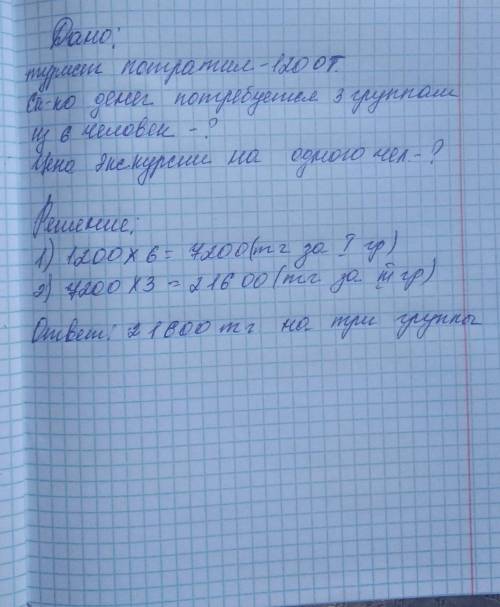 Дано:
турист потратил - 1200т.
Ск-ко денег потребуется 3 группам
из 6 человек - ?
Цена экскурсии на одного чел. - ?
Решение:
1) 1200 х 6 = 7200 (тг за I гр)
2) 7200 х 3 = 21600 (тг за III гр)
Ответ: 21600 тг на три группы